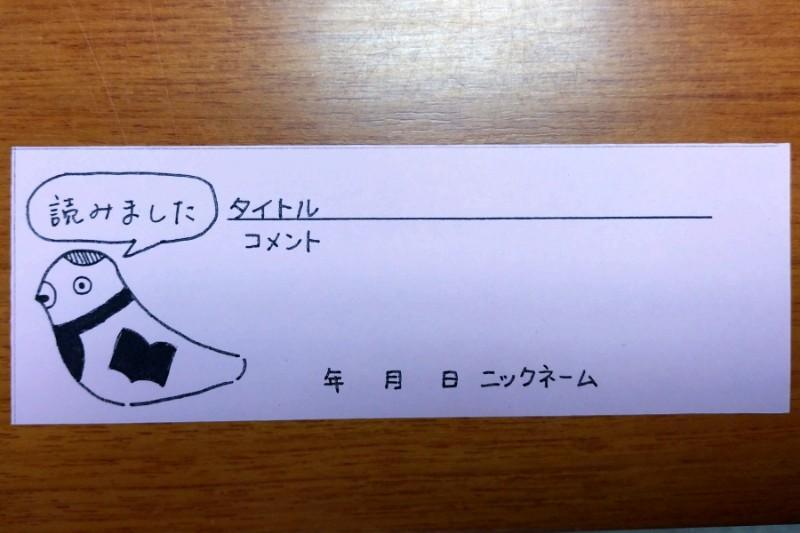 読みました
タイトル
コメント
年 月 日 ニックネーム